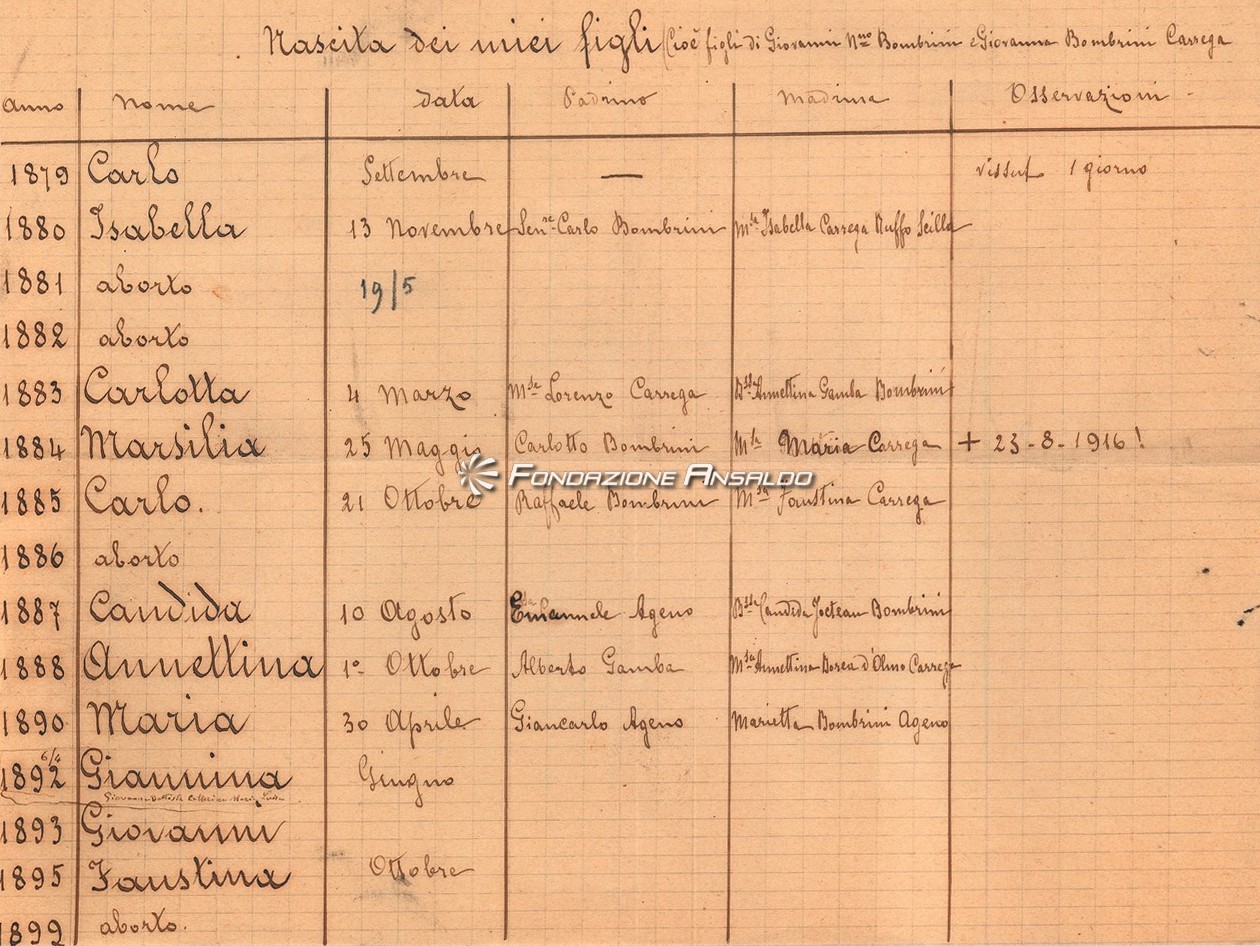 Nascita dei miei figli (Cioè figli di Giovanni Bombrini e Giovanna Bombrini Carrega
Anno nome data Padrino Madrina Osservazioni
1879 Carlo Settembre — 1 giorno
1880 Isabella 13 Novembre Senre Carlo Bombrini Msa Isabella Carrega Ruffo Scilla
1881 aborto 19/5
1882 aborto
1883 Carlotta 4 Marzo Mse Lorenzo Carrega Bssa Annettina Gamba Bombrini
1884 Marsilia 25 Maggio Carlotto Bombrini Msa Maria Carrega + 23-8-1916!
FONDAZIONE ANSALDO
1885 Carlo. 21 Ottobre Raffaele Bombrini Msa Faustina Carrega
1886 aborto
1887 Candida 10 Agosto Emanuele Ageno Bssa Candida Jocteau Bombrini
1888 Annettina 1° Ottobre Alberto Gamba Msa Annettina Borea d'Olmo Carrega
1890 Maria 30 Aprile Giancarlo Ageno Marietta Bombrini Ageno
6/4
1892 Giannina Giugno
Giovanna Battista Caterina Maria Luisa
1893 Giovanni
1895 Faustina Ottobre
1899 aborto.